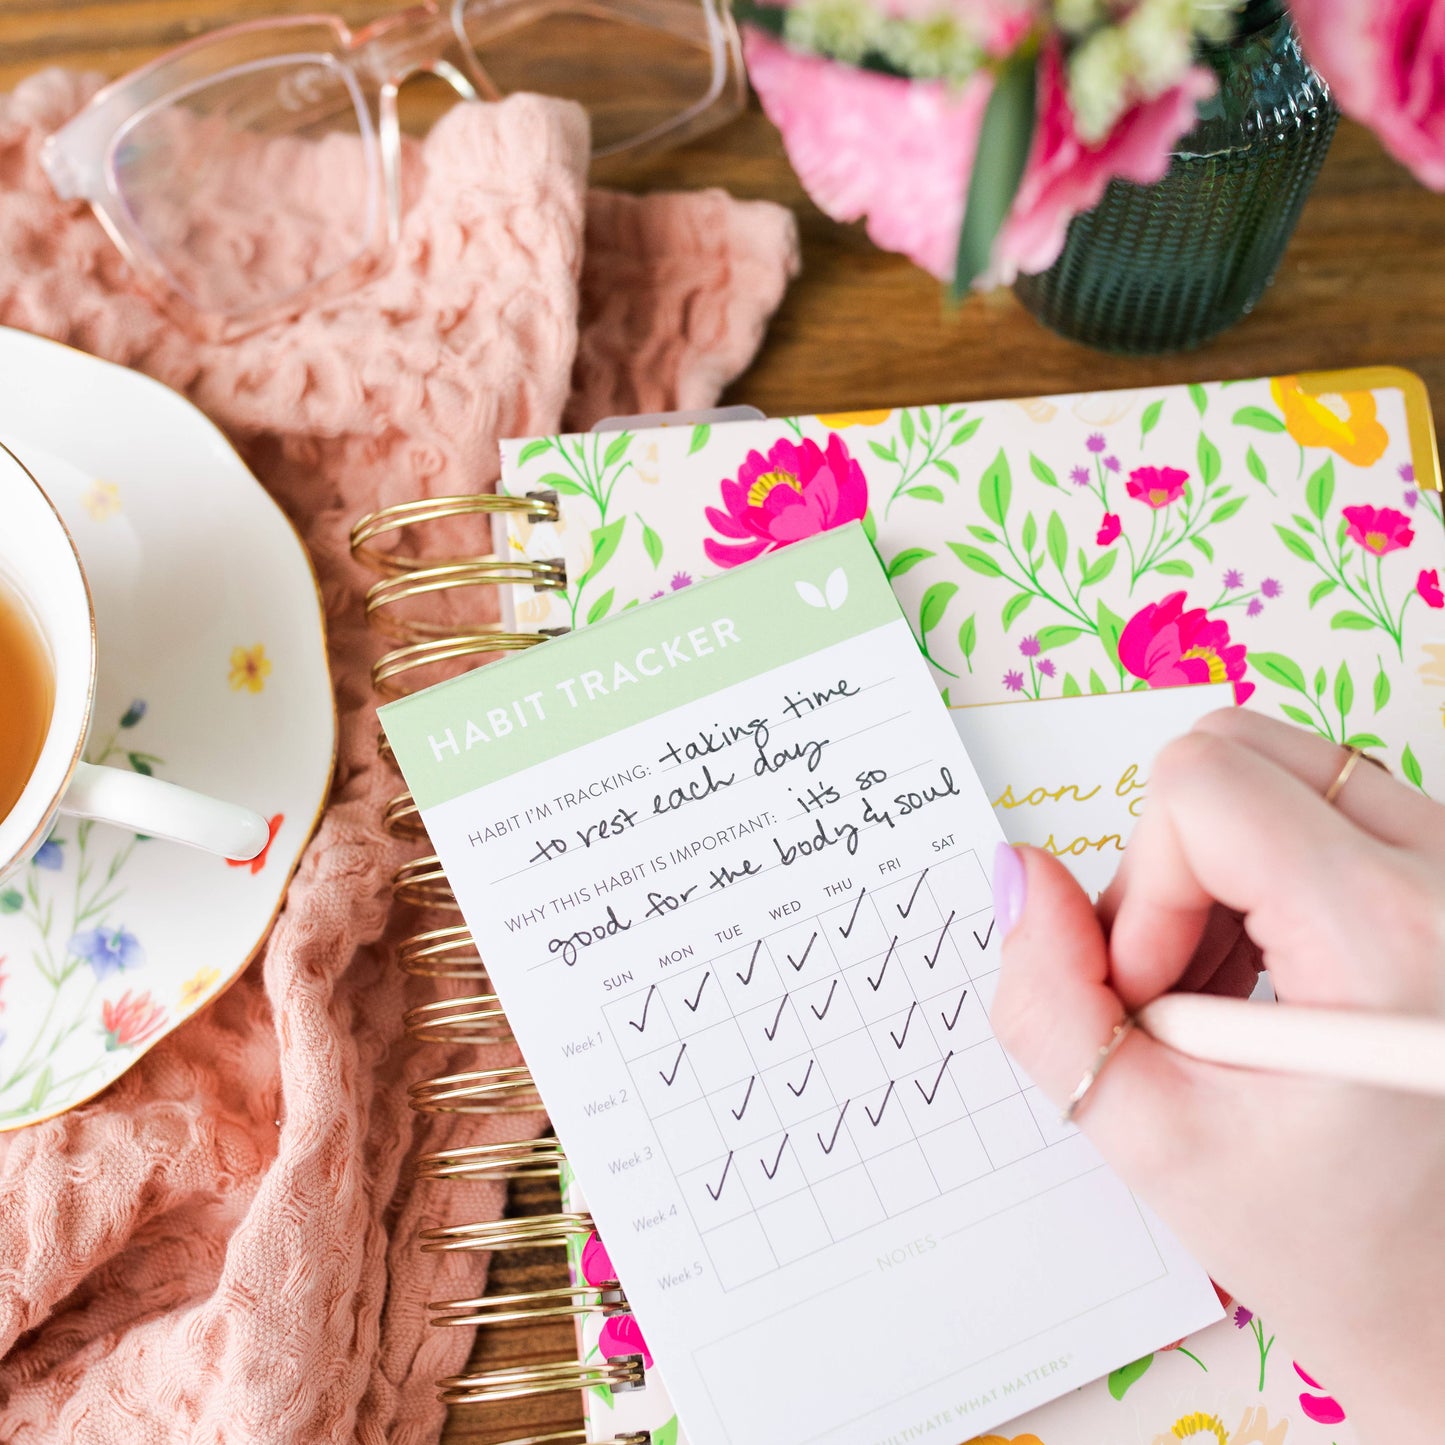 HABIT TRACKER
HABIT I'M TRACKING: taking time
to rest each day
WHY THIS HABIT IS IMPORTANT: it's so
good for the body & soul
SUN MON TUE WED THU FRI SAT
Week 1
Week 2
Week 3
Week 4
Week 5
NOTES
CULTIVATE WHAT MATTERS®